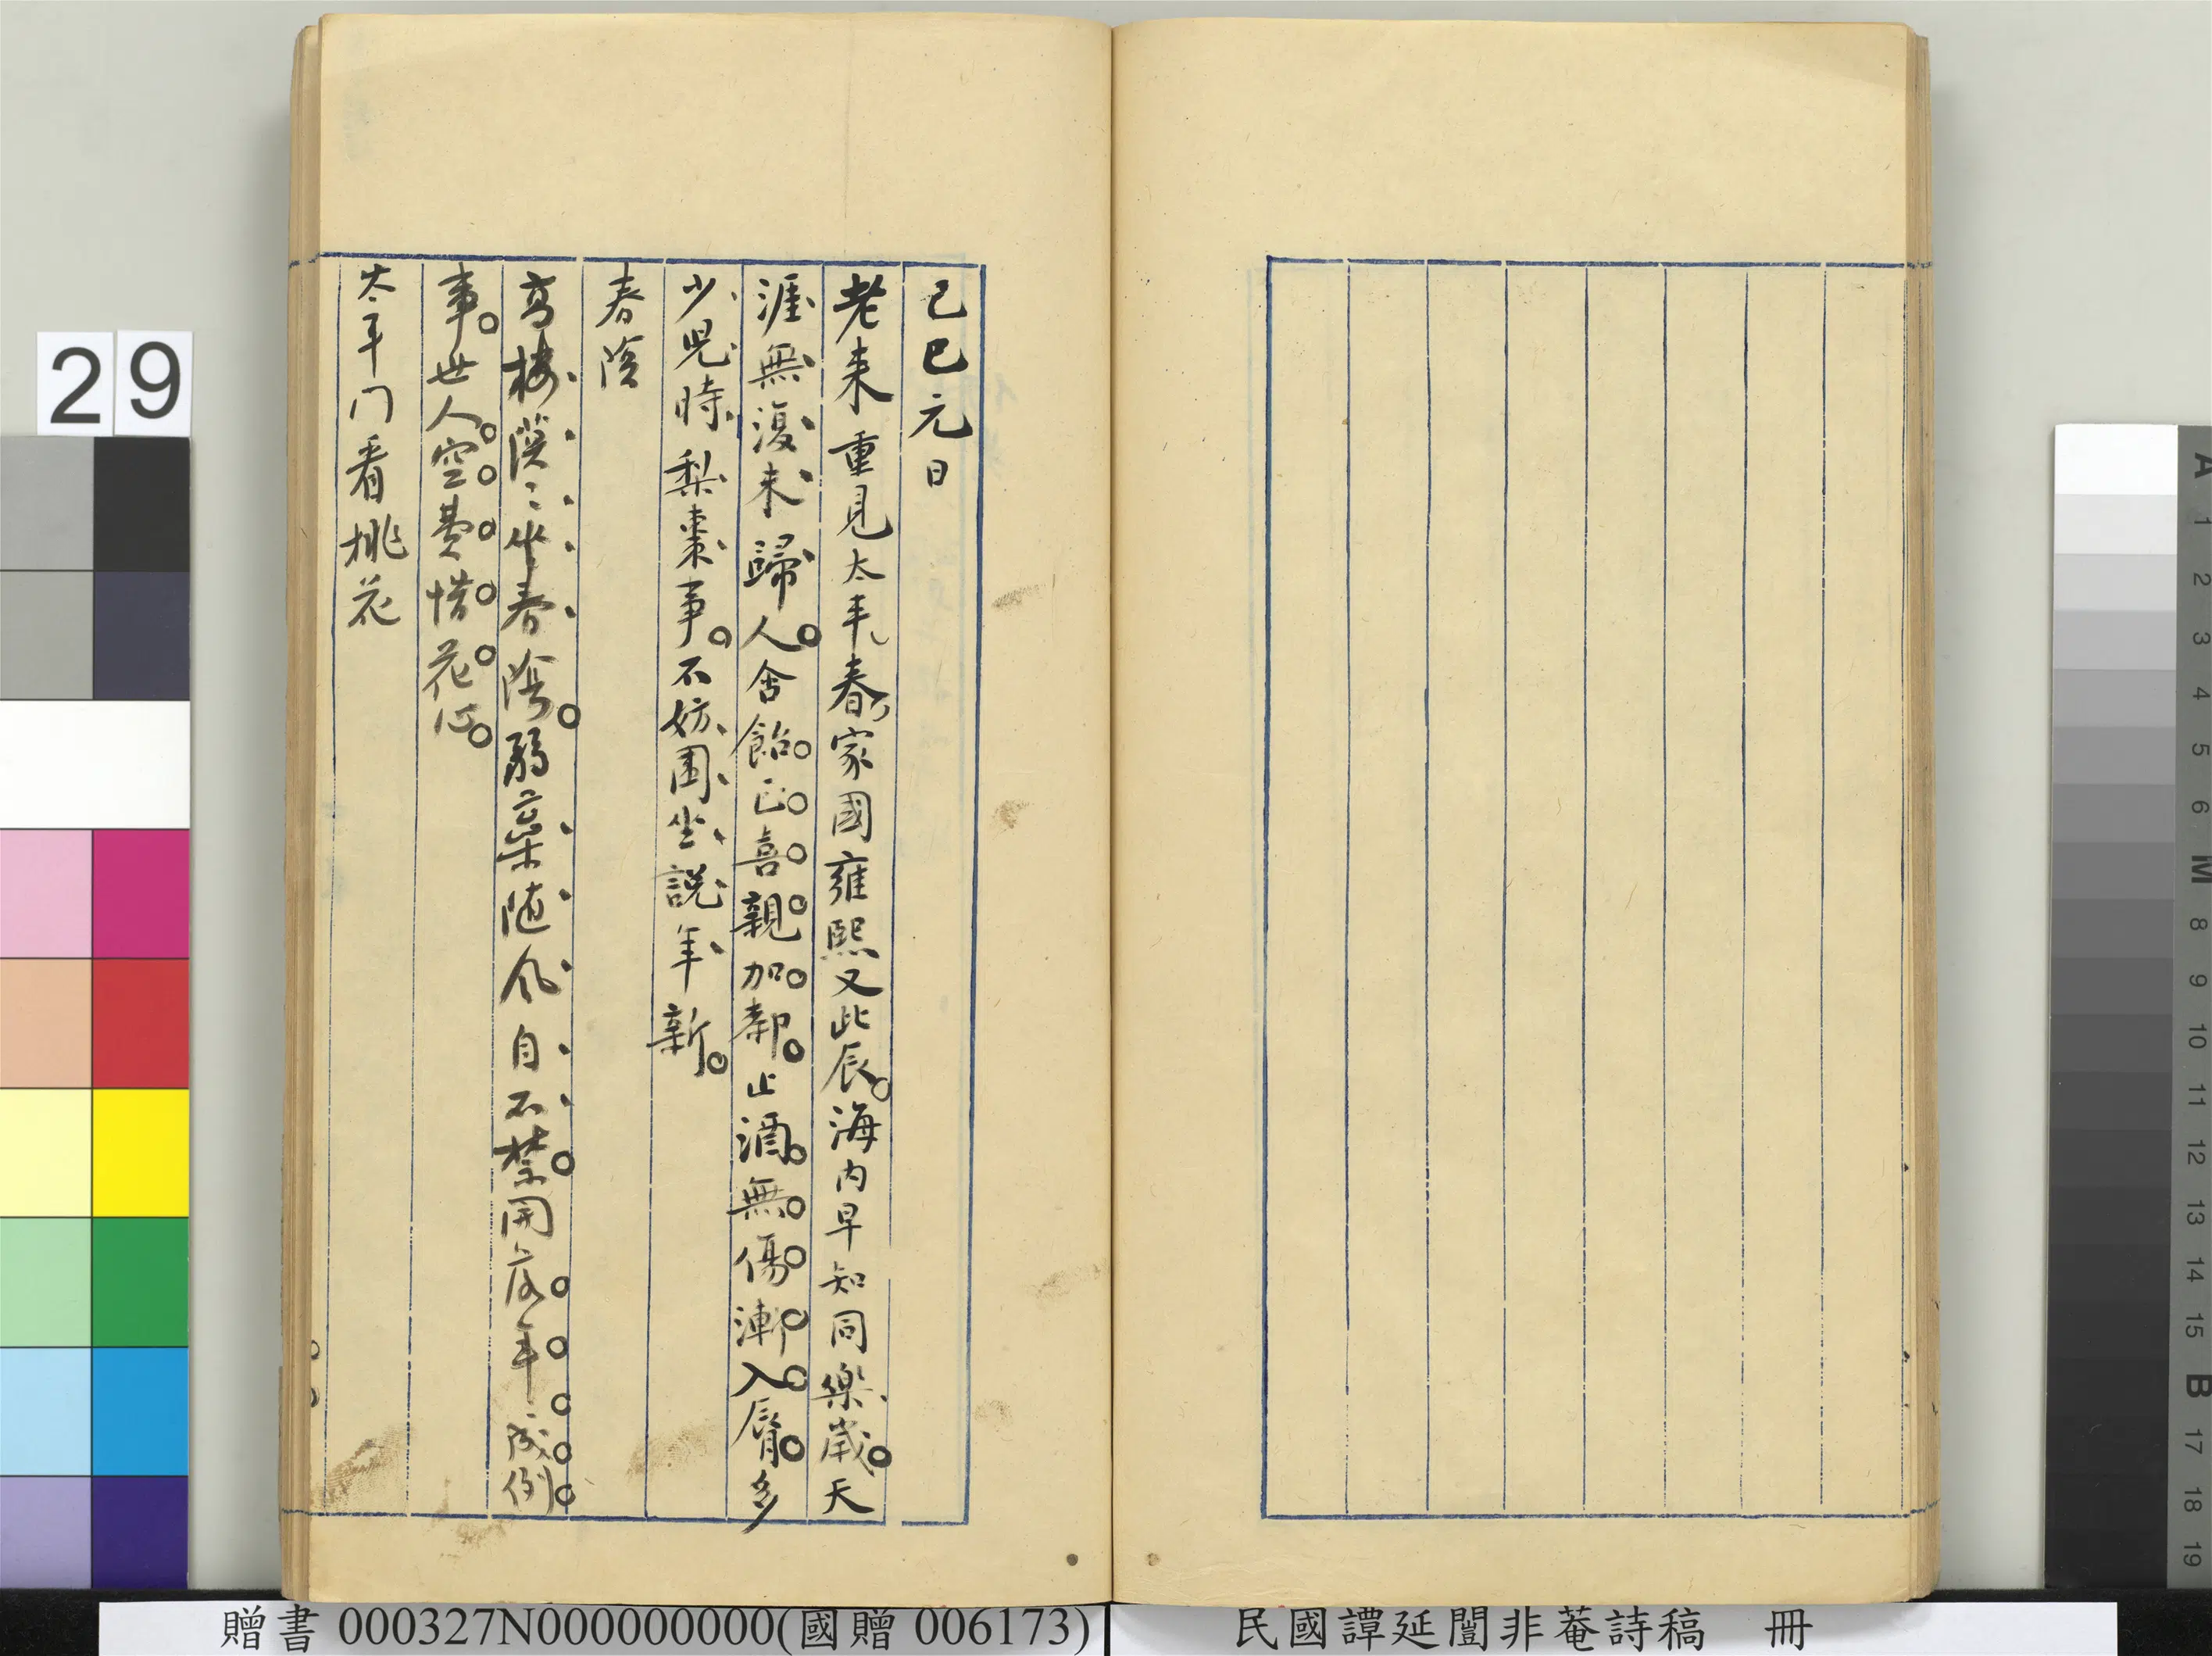 29
己巳元日
老来重見太平春家國雍熙又此辰海内早知同樂歲天
涯無復未歸人含飴正喜親加厀止酒無傷漸入脣多
少兒時梨棗事不妨圍坐說年新
春陰
高樓漠〻坐春陰弱隨風自不禁開年〻成例
事世人空費惜花心
太平门看桃花
A 1 2 3 4 5 6 M 8 9 10 11 12 13 14 15 B 17 18 19
贈書 000327N000000000(國贈 006173)
民國譚延闓非菴詩稿 冊